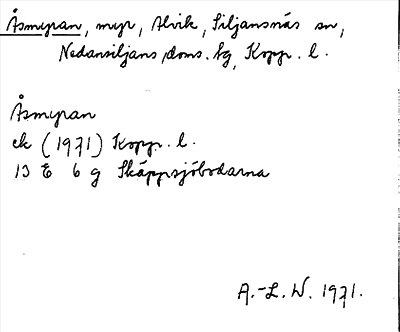 Åsmyran, myr, Alvik, Siljansnäs sn,
Nedansiljans doms. fg, Kopp. l.
Åsmyran
ek (1971) Kopp. l.
13 E 6 g Skäppsjöbodarna
A.-L. W. 1971.